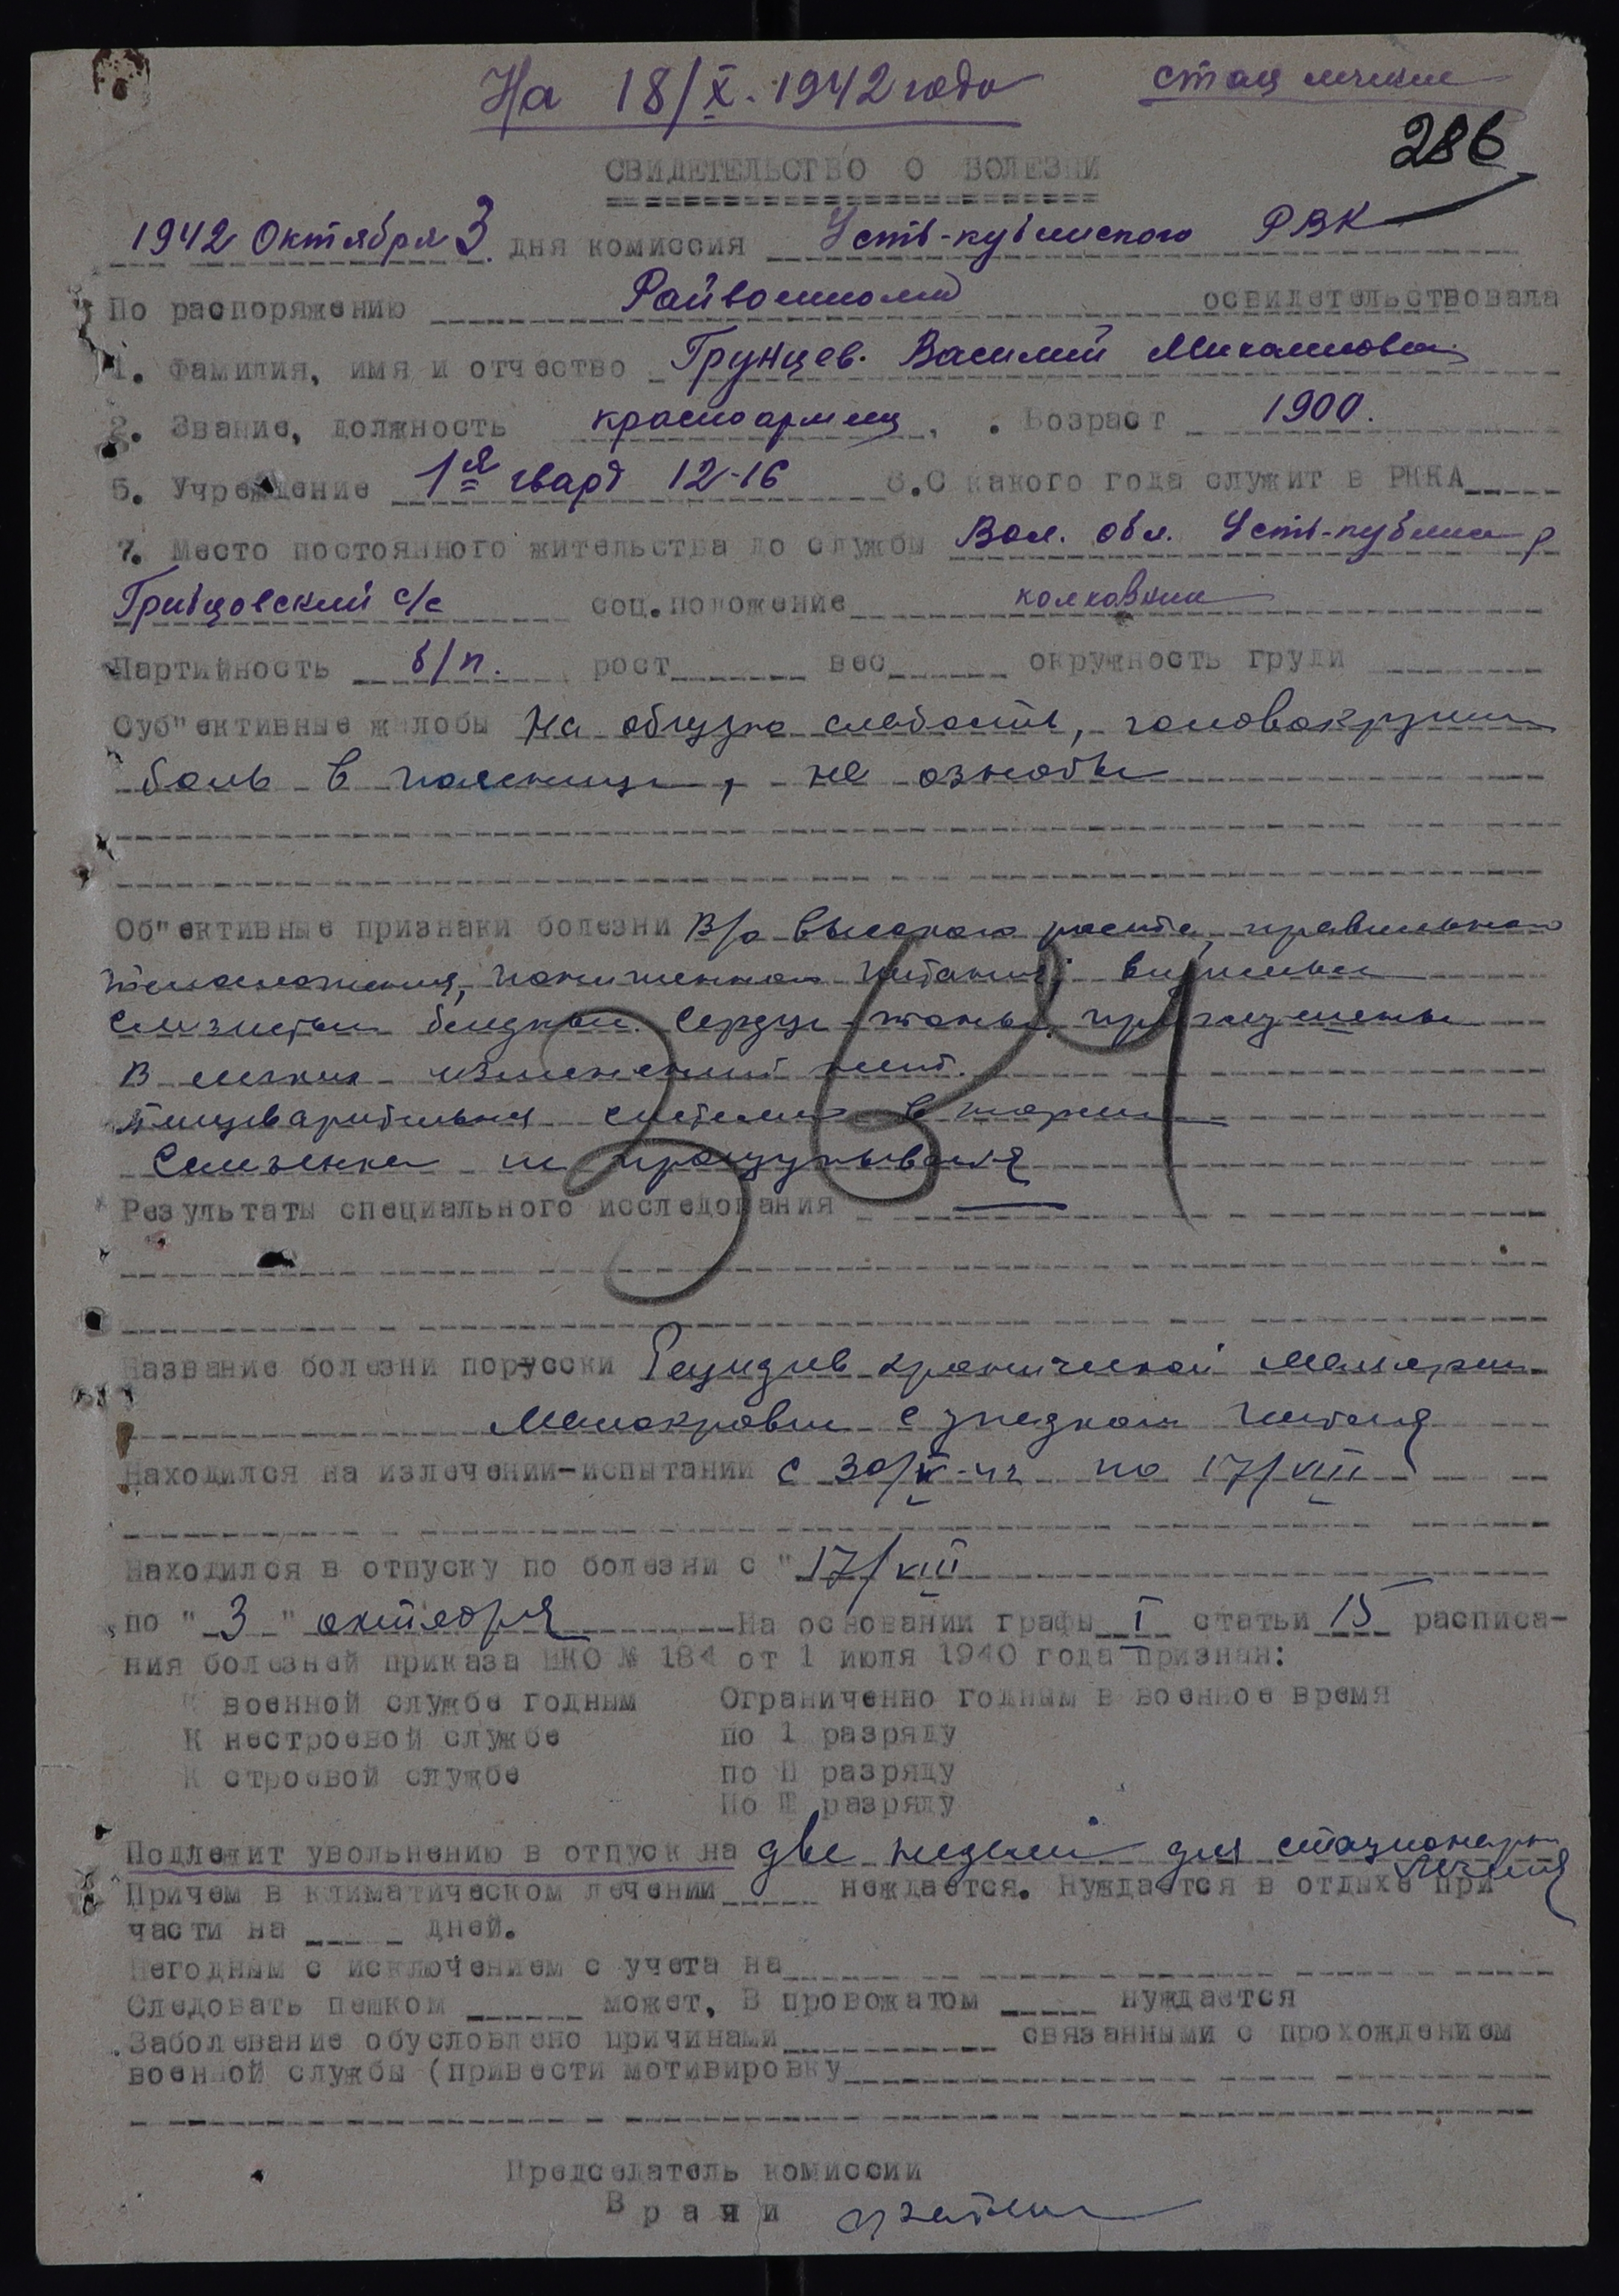 На 18/X. 1942 года
стац лечение
286
СВИДЕТЕЛЬСТВО О БОЛЕЗНИ
1942 Октября 3 дня комиссия Усть-кубинского РВК
По распоряжению Райвоенкома освидетельствовала
1. Фамилия, имя и отчество Грунцев Василий Михайлович
2. Звание, должность красноармеец. Возраст 1900.
5. Учреждение 1я гвард 12-16 6.С какого года служит в РККА
7. Место постоянного жительства до службы Вол. обл. Усть-кубинск р
Грибцовский с/с соц.положение колхозник
Партийность б/п. рост вес окружность груди
Суб"ективные жалобы На общую слабость, головокружен
боль в пояснице, не ознобы
Об"ективные признаки болезни В/о высокого роста, правильного
телосложения, пониженного питания, видимые
слизистые бледные. Сердце - тоны приглушены
В легких изменений нет.
Пищеварительная система в норме
Селезенка не прощупывается
354
Результаты специального исследования
Название болезни порусски Рецидив хронической малярии
Малокровие с упадком питания
Находился на излечении-испытании с 30/V-42 по 17/VIII
Находился в отпуску по болезни с "17/VIII
по "3" октября На основании графы I статьи 15 расписа-
ния болезней приказа НКО № 184 от 1 июля 1940 года признан:
К военной службе годным Ограниченно годным в военное время
К нестроевой службе по 1 разряду
К строевой службе по II разряду
По III разряду
Подлежит увольнению в отпуск на две недели для стационарн
лечения
Причем в климатическом лечении неждается. Нуждается в отдыхе при
части на дней.
Негодным с исключением с учета на
Следовать пешком может, В провожатом нуждается
Заболевание обусловлено причинами связанными с прохождением
военной службы (привести мотивировку
Председатель комиссии
Врачи